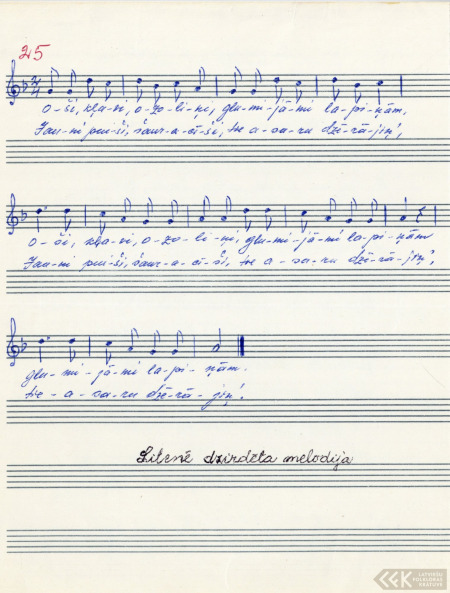 25
2
4
O-ši, kļa-vi, o-zo-li-ņi, glu-mi-jā-mi la-pi-ņām,
Jau-ni pui-ši, šaur-a-cī-ši, tie a-sa-ru dzē-rā-jiņ',
O-ši, kļa-vi, o-zo-li-ņi, glu-mi-jā-mi la-pi-ņām
Jau-ni pui-ši, šaur-a-cī-ši, tie a-sa-ru dzē-rā-jiņ',
glu-mi-jā-mi la-pi-ņām.
tie-a-sa-ru dzē-rā-jiņ'.
Litenē dzirdēta melodija
LFK
LATVIEŠU
FOLKLORAS
KRĀTUVE